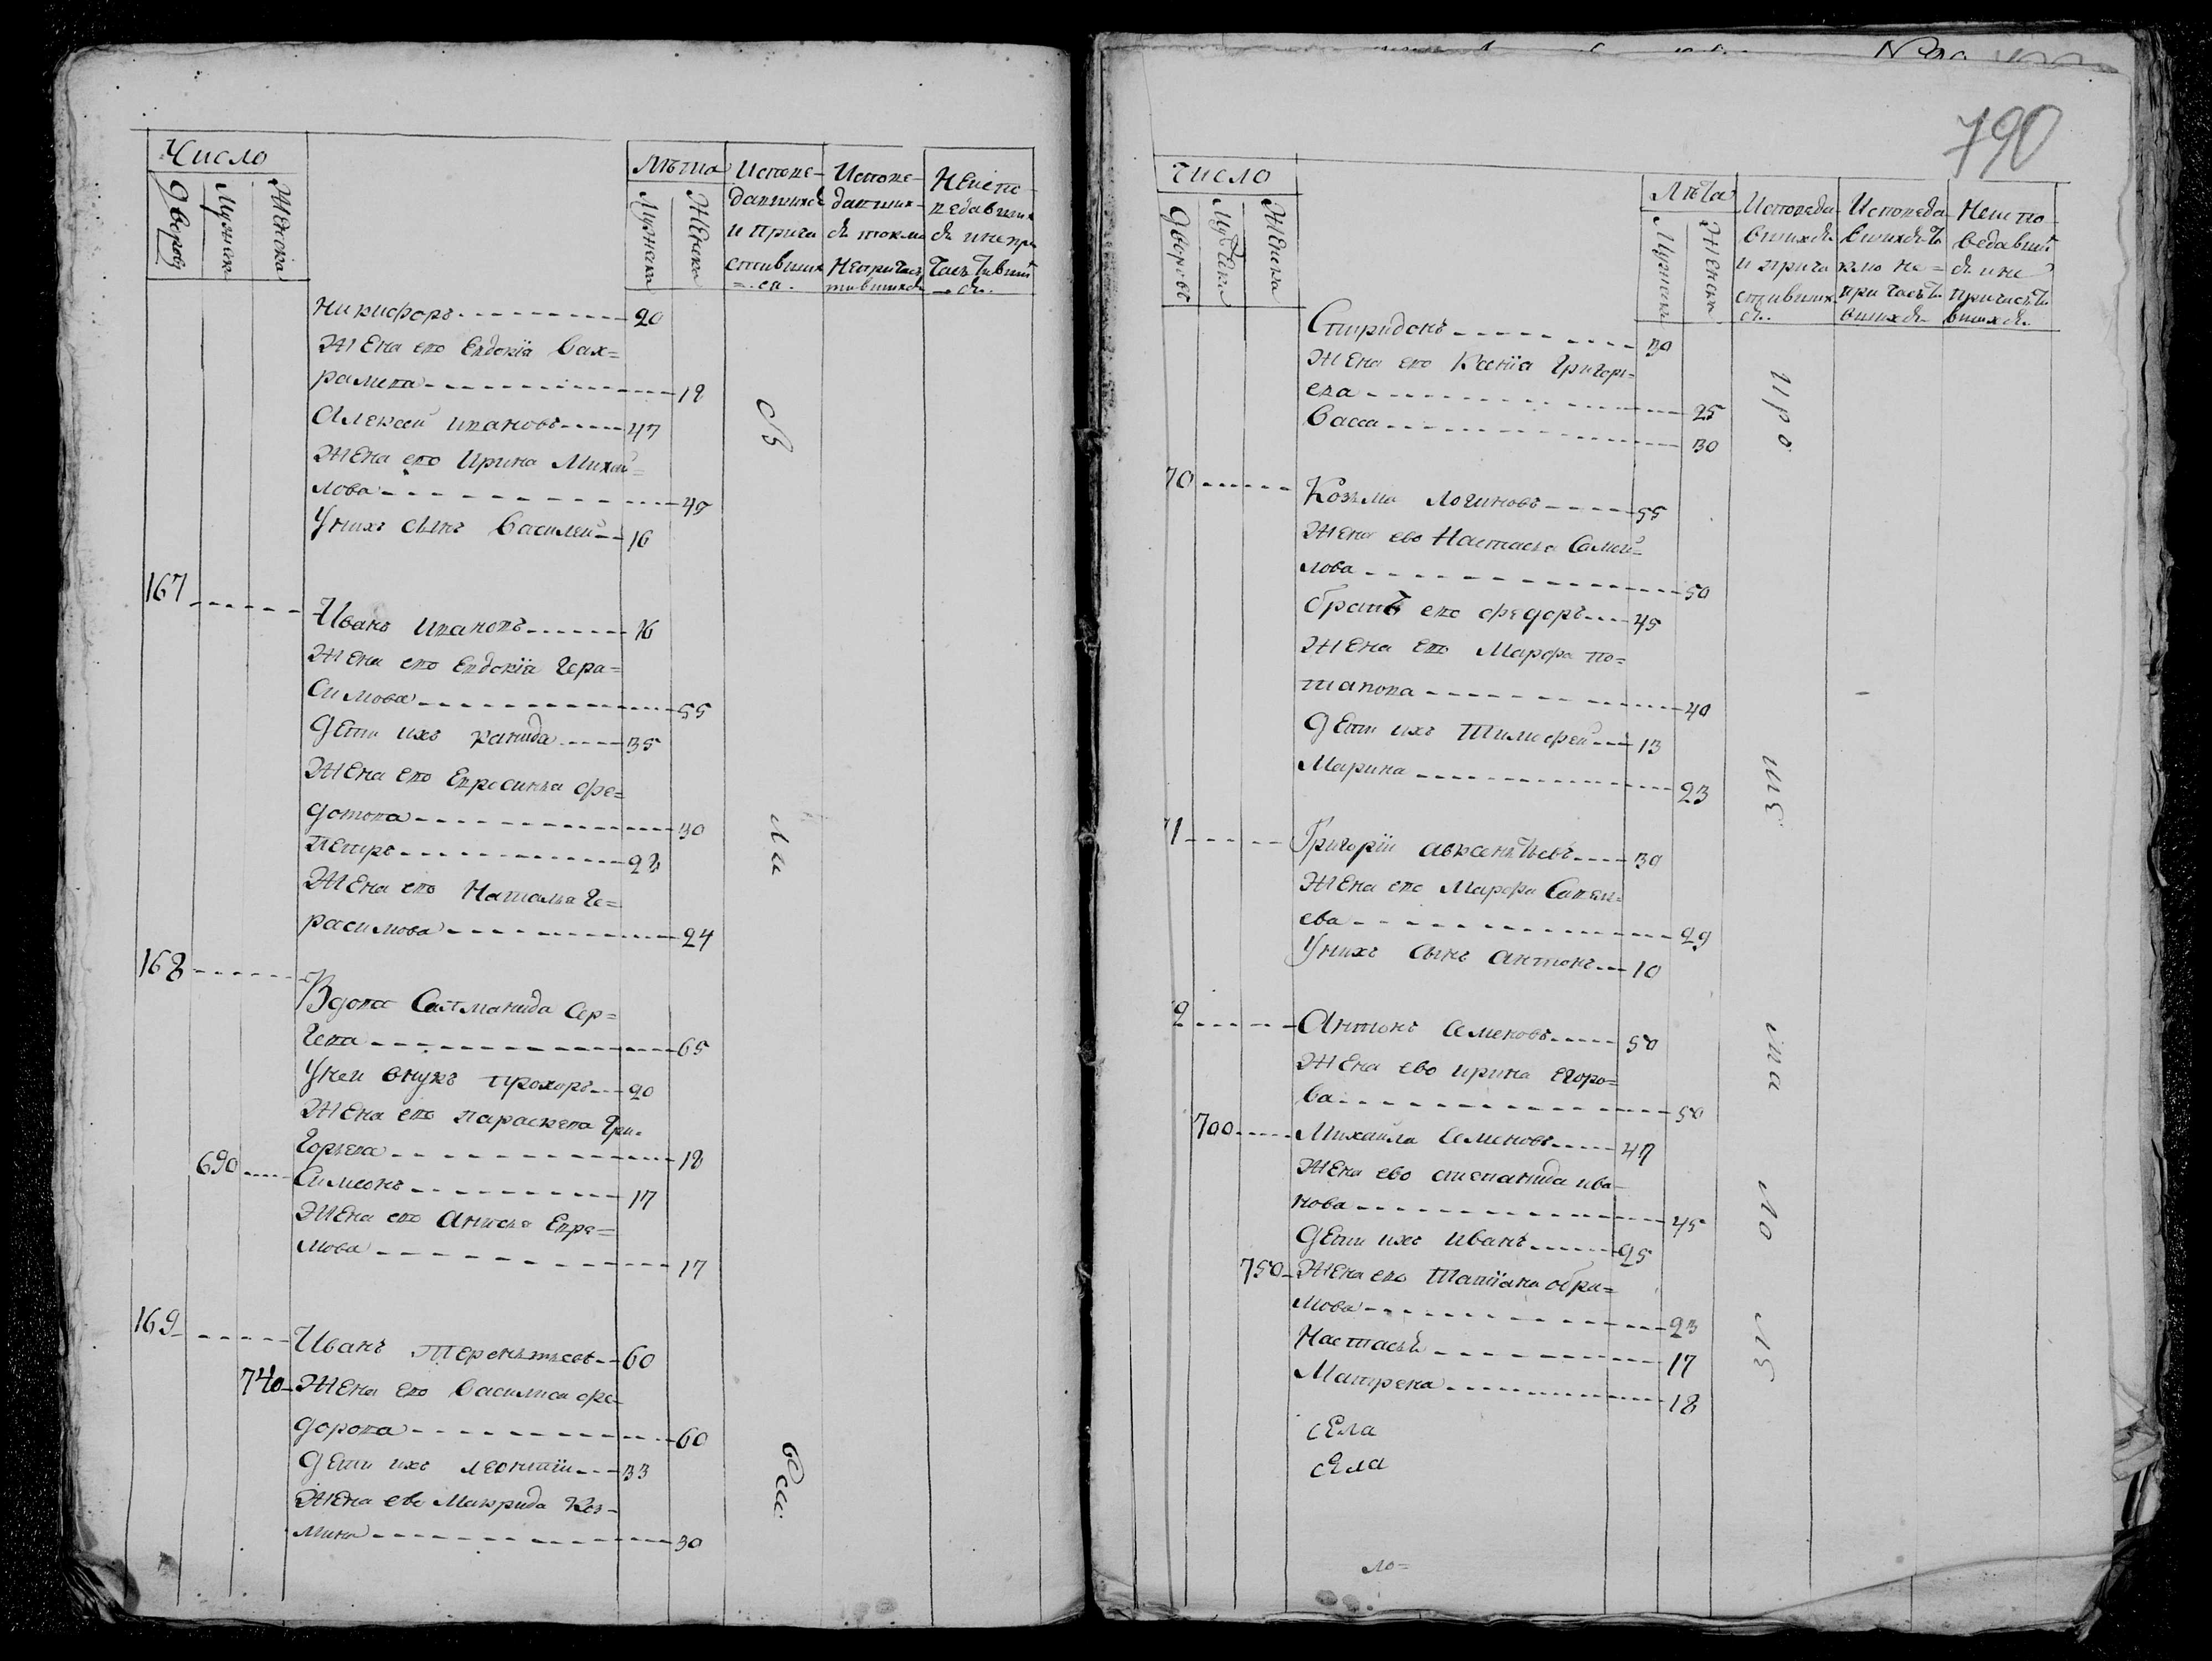 Число
Дворовъ
Мужеска
Женска
Лѣта
Мужеска
Женска
Испове-
давшихся
и прича
стившихъ
=ся.
Испове-
давших-
ся токмо
непричас
тившихся
Неиспо
ведавших
ся и непри
частивших
-ся.
Никифоръ - - - 20
Жена его Евдокїа Вах=
рамева - - - 18
Алексеи Ивановъ - - - 47
Жена его Ирина Михаи=
лова - - - 45
У нихъ сынъ Василей - - 16
167 - - - Иванъ Ивановъ - - - 76
Жена его Евдокїа Гера=
симова - - - 55
Дети ихъ - - - 35
Жена его Евросинья Фе=
дотова - - - 30
Петръ - - - 28
Жена его Наталья Ге=
расимова - - - 24
168 - - - Вдова Сер=
геева - - - 65
У неи внукъ Прохоръ - - 20
Жена его Параскева Гри=
горьева - - - 18
690 - - - Симеонъ - - - 17
Жена его Анисья Евре=
мова - - - 17
169 - - - Иванъ Терентьевъ - - 60
740 - Жена его Василиса Фе-
дорова - - - 60
Дети ихъ Леонтїи - - - 33
Жена ево Макрида Коз-
мина - - - 30
сѣ
ли
всѣ.
790
Число
Дворовъ
Мужеска
Женска
Лѣта
Мужеска
Женска
Исповеда-
вшихся
и прича
стивших
ся.
Исповеда
вшихся то
кмо не=
причасти
вшихся
Неиспо
ведавших
ся и не
причасти
вшихся.
Спиридонъ - - - 30
Жена его Ксенїа Григорь=
ева - - - 25
Васса - - - 30
70 - - - Козьма Логиновъ - - - 55
Жена ево Настасья Самои=
лова - - - 50
братъ его Федоръ - - - 45
Жена его Марфа По=
тапова - - - 40
Дети ихъ Тимофей - - - 13
Марина - - - 23
1 - - - Григорїи Авксентьевъ - - - 30
Жена его Марфа Савель=
ева - - - 29
У нихъ сынъ Антонъ - - - 10
2 - - - Антонъ Семеновъ - - - 50
Жена ево Ирина Егоро=
ва - - - 50
700 - - - Михаила Семеновъ - - - 47
Жена ево Степанида Ива-
нова - - - 45
Дети ихъ Иванъ - - - 25
750 - Жена его Татїана Абра=
мова - - - 23
Настасья - - - 17
Матрена - - - 18
села
села
ло=